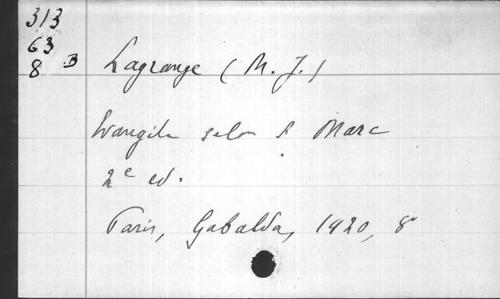 313
63
8 B
Lagrange (M. J.)
Evangile selon St Marc
2e ed.
Paris, Gabalda, 1920, 8°